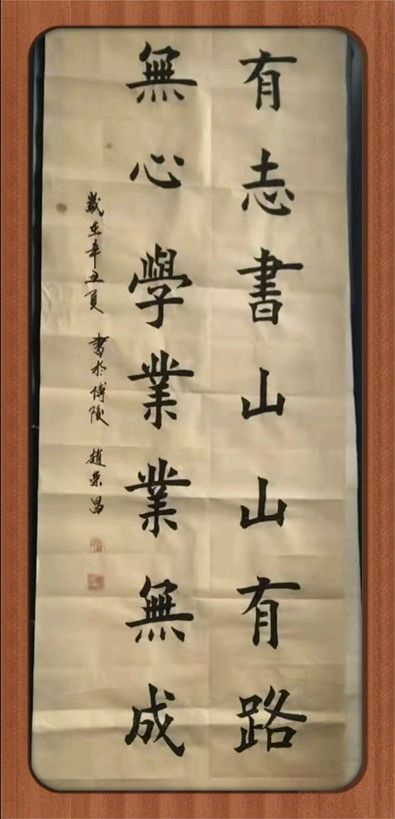 有志書山山有路
無心學業業無成
歲在辛丑夏 書於博陵 趙榮昌